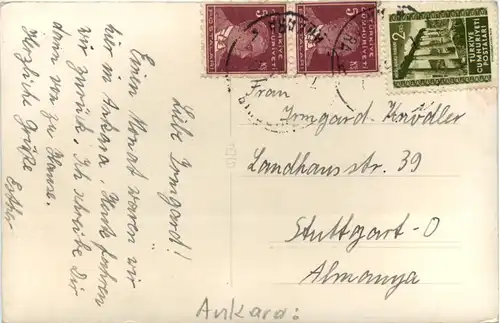 Liebe Irmgard!
Einen Monat waren wir
hier in Ankara. Heute fahren
wir zurück. Ich schreibe Dir
dann von zu Hause.
Herzliche Grüße
Esther
Frau
Irmgard Knödler
Landhausstr. 39
Stuttgart-O
Almanya
Ankara:
5
5
2
TÜRKİYE
CUMHURİYETİ
POSTALARI